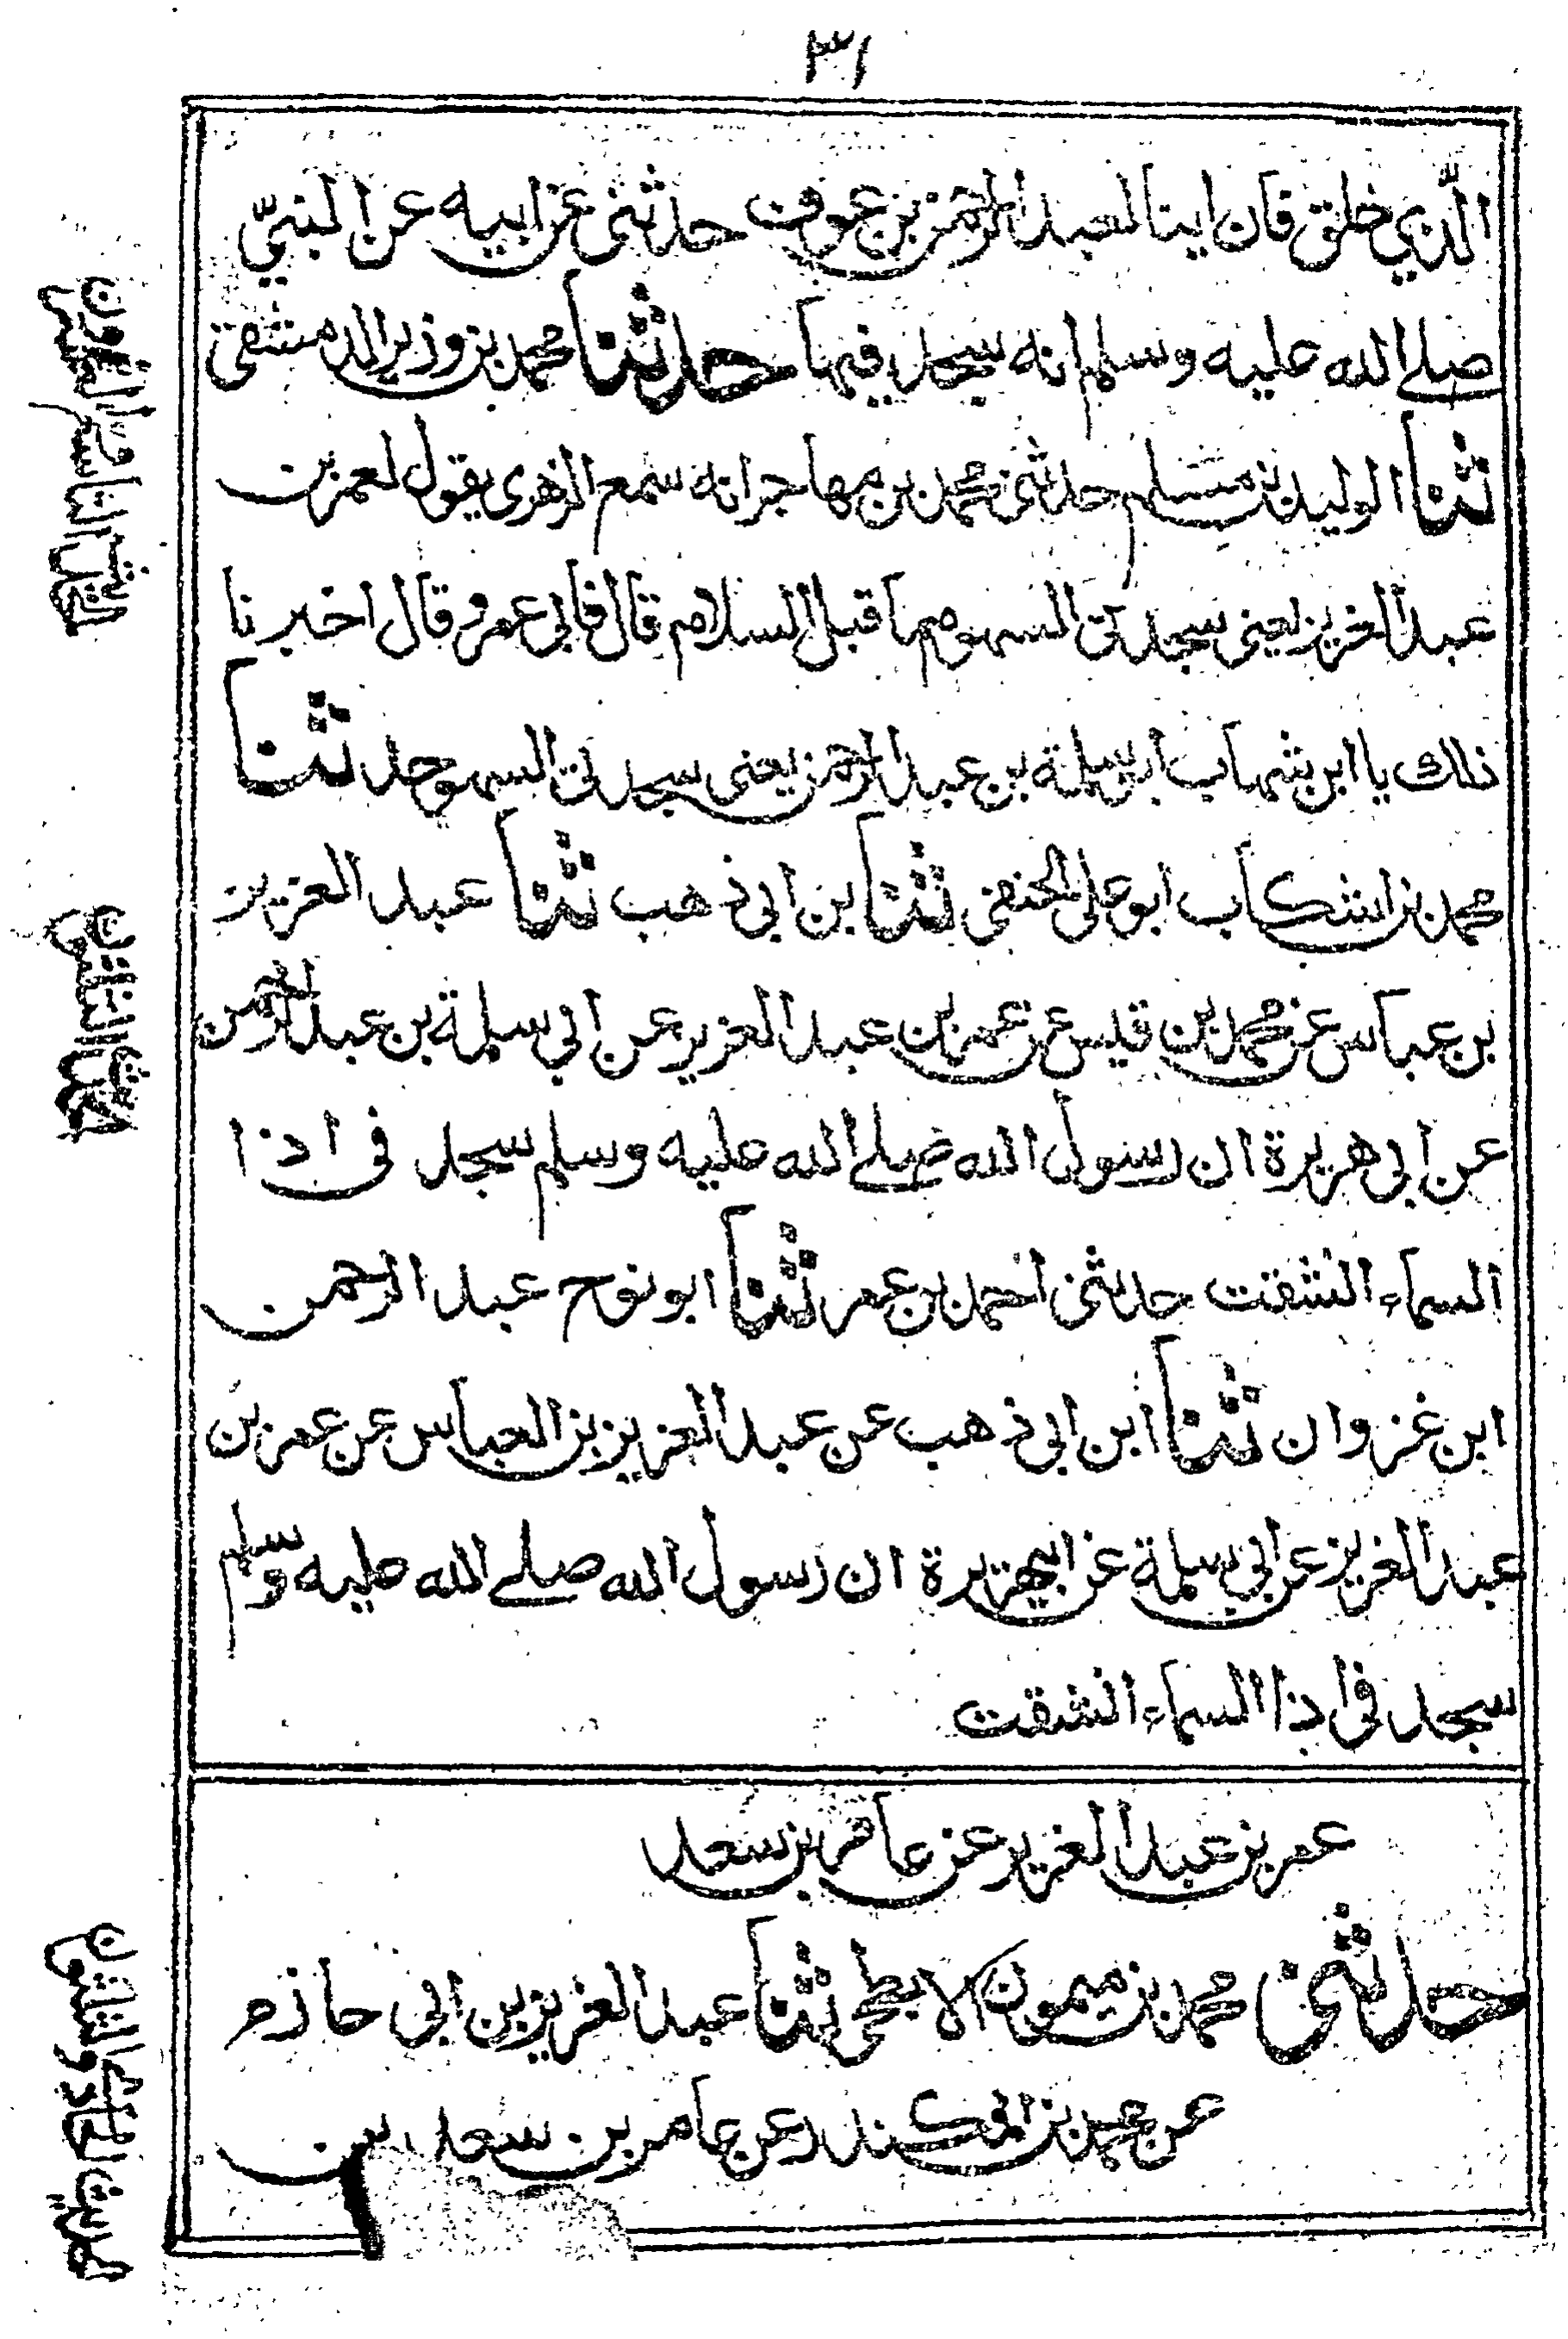 ٣١
الّذي خلق فان ابنا لعبد الرحمن بن عوف حدثنى عن ابيه عن النبيّ
صلے الله عليه وسلم انه سجد فيها حدثنا محمد بن وزير الدمشقى
ثنا الوليد بن مسلم حدثنى محمد بن مهاجر انه سمع الزهرى يقول لعمر بن
عبد العزيز يعنى سجدتى السهو هما قبل السلام قال فابى عمر وقال اخبرنا
ذلك يا ابن شهاب ابو سلمة بن عبد الرحمن يعنى سجدتى السهو حدثنا
محمد بن اشكاب ابو على الحنفى ثنا بن ابى ذهب ثنا عبد العزيز
بن عباس عن محمد بن قيس عن عمر بن عبد العزيز عن ابي سلمة بن عبد الرحمن
عن ابي هريرة ان رسول الله صلے الله عليه وسلم سجد فى اذا
السماء انشقت حدثنى احمد بن عمر ثنا ابو نوح عبد الرحمن
ابن غزوان ثنا ابن ابى ذهب عن عبد العزيز بن العباس عن عمر بن
عبد العزيز عن ابي سلمة عن ابيهريرة ان رسول الله صلے الله عليه وسلم
سجد فى اذا السماء انشقت
عمر بن عبد العزيز عن عامر بن سعد
حدثنى محمد بن ميمون الابطحى ثنا عبد العزيز بن ابى حازم
عن محمد بن المكندر عن عامر بن سعد بن
الحديث التاسع والعشرون
الحديث الثلثون
الحديث الحادى والثلثون